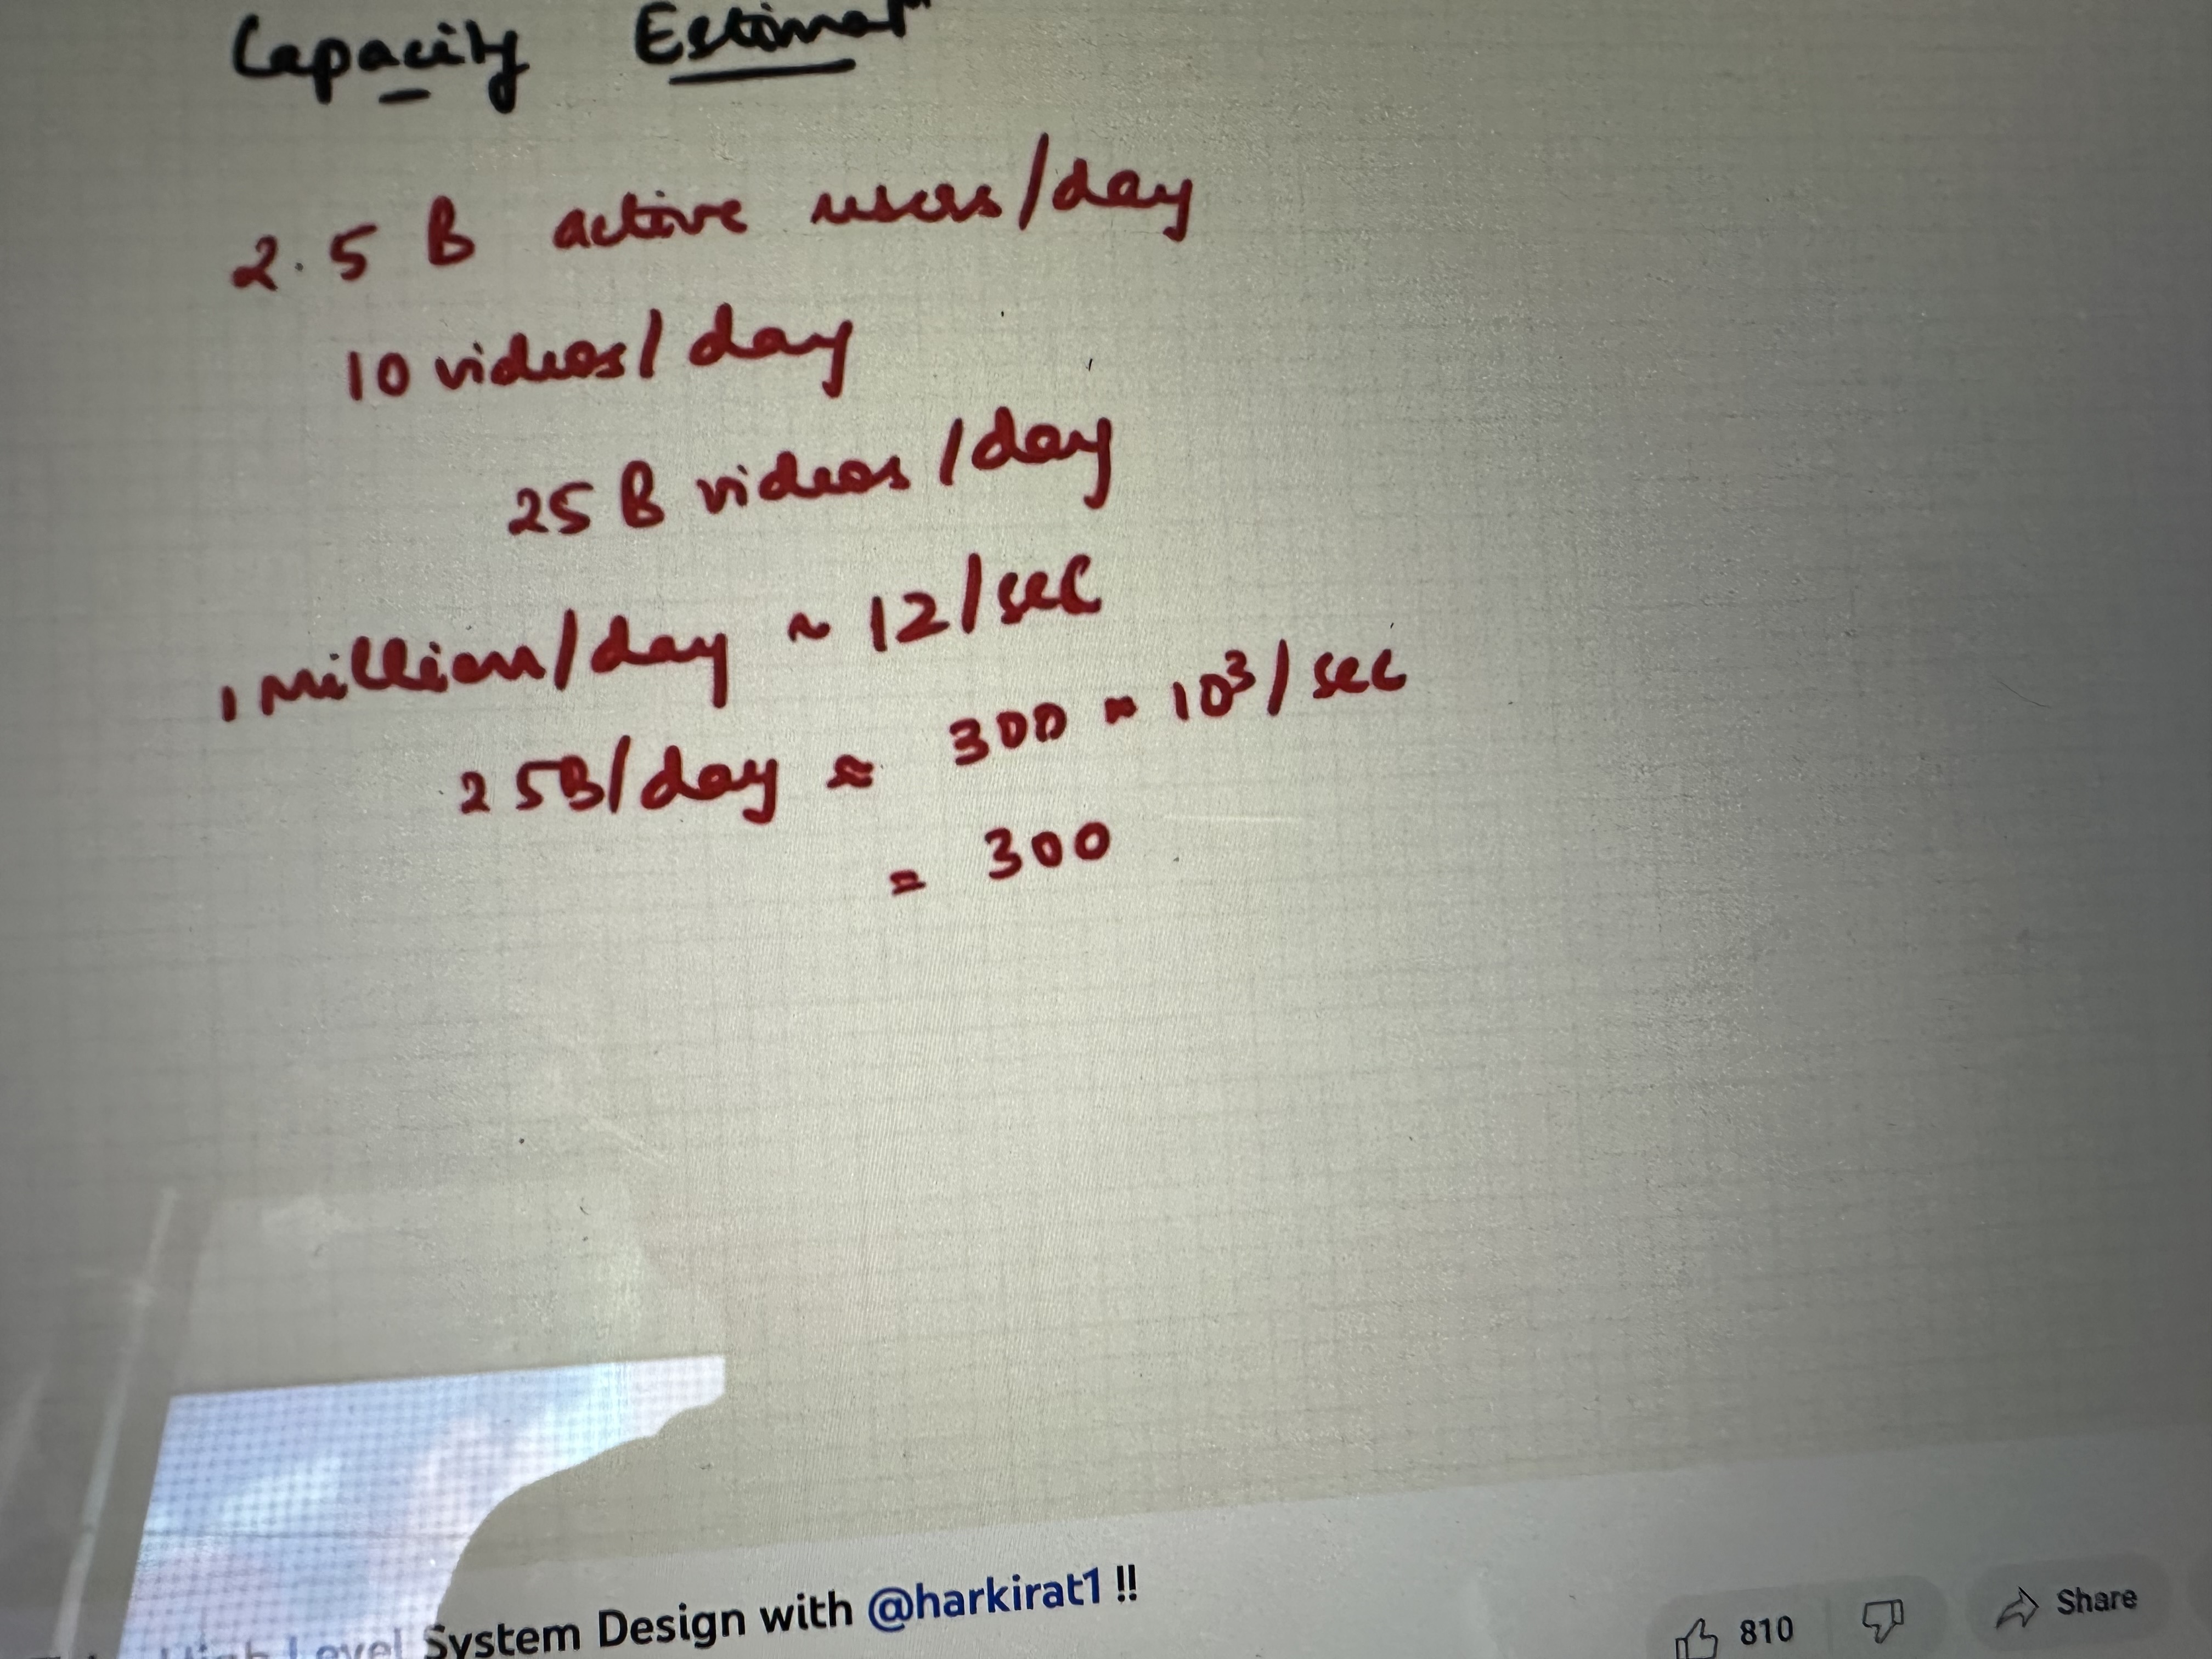 Capacity Estimat"
2.5 B active users/day
10 videos/day
25 B videos/day
1 million/day ~ 12/sec
25B/day ≈ 300 × 10³/sec
= 300
High Level System Design with @harkirat1 !!
810
Share